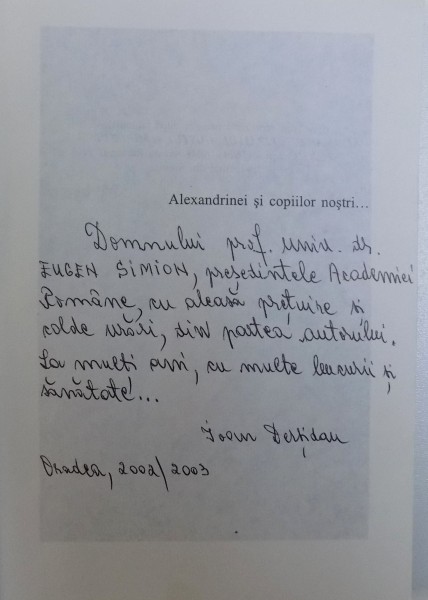 Alexandrinei și copiilor noștri...
Domnului prof. univ. dr.
EUGEN SIMION, președintele Academiei
Române, cu aleasă prețuire și
calde urări, din partea autorului.
La mulți ani, cu multe bucurii și
sănătate!...
Ioan Derșidan
Oradea, 2002/2003